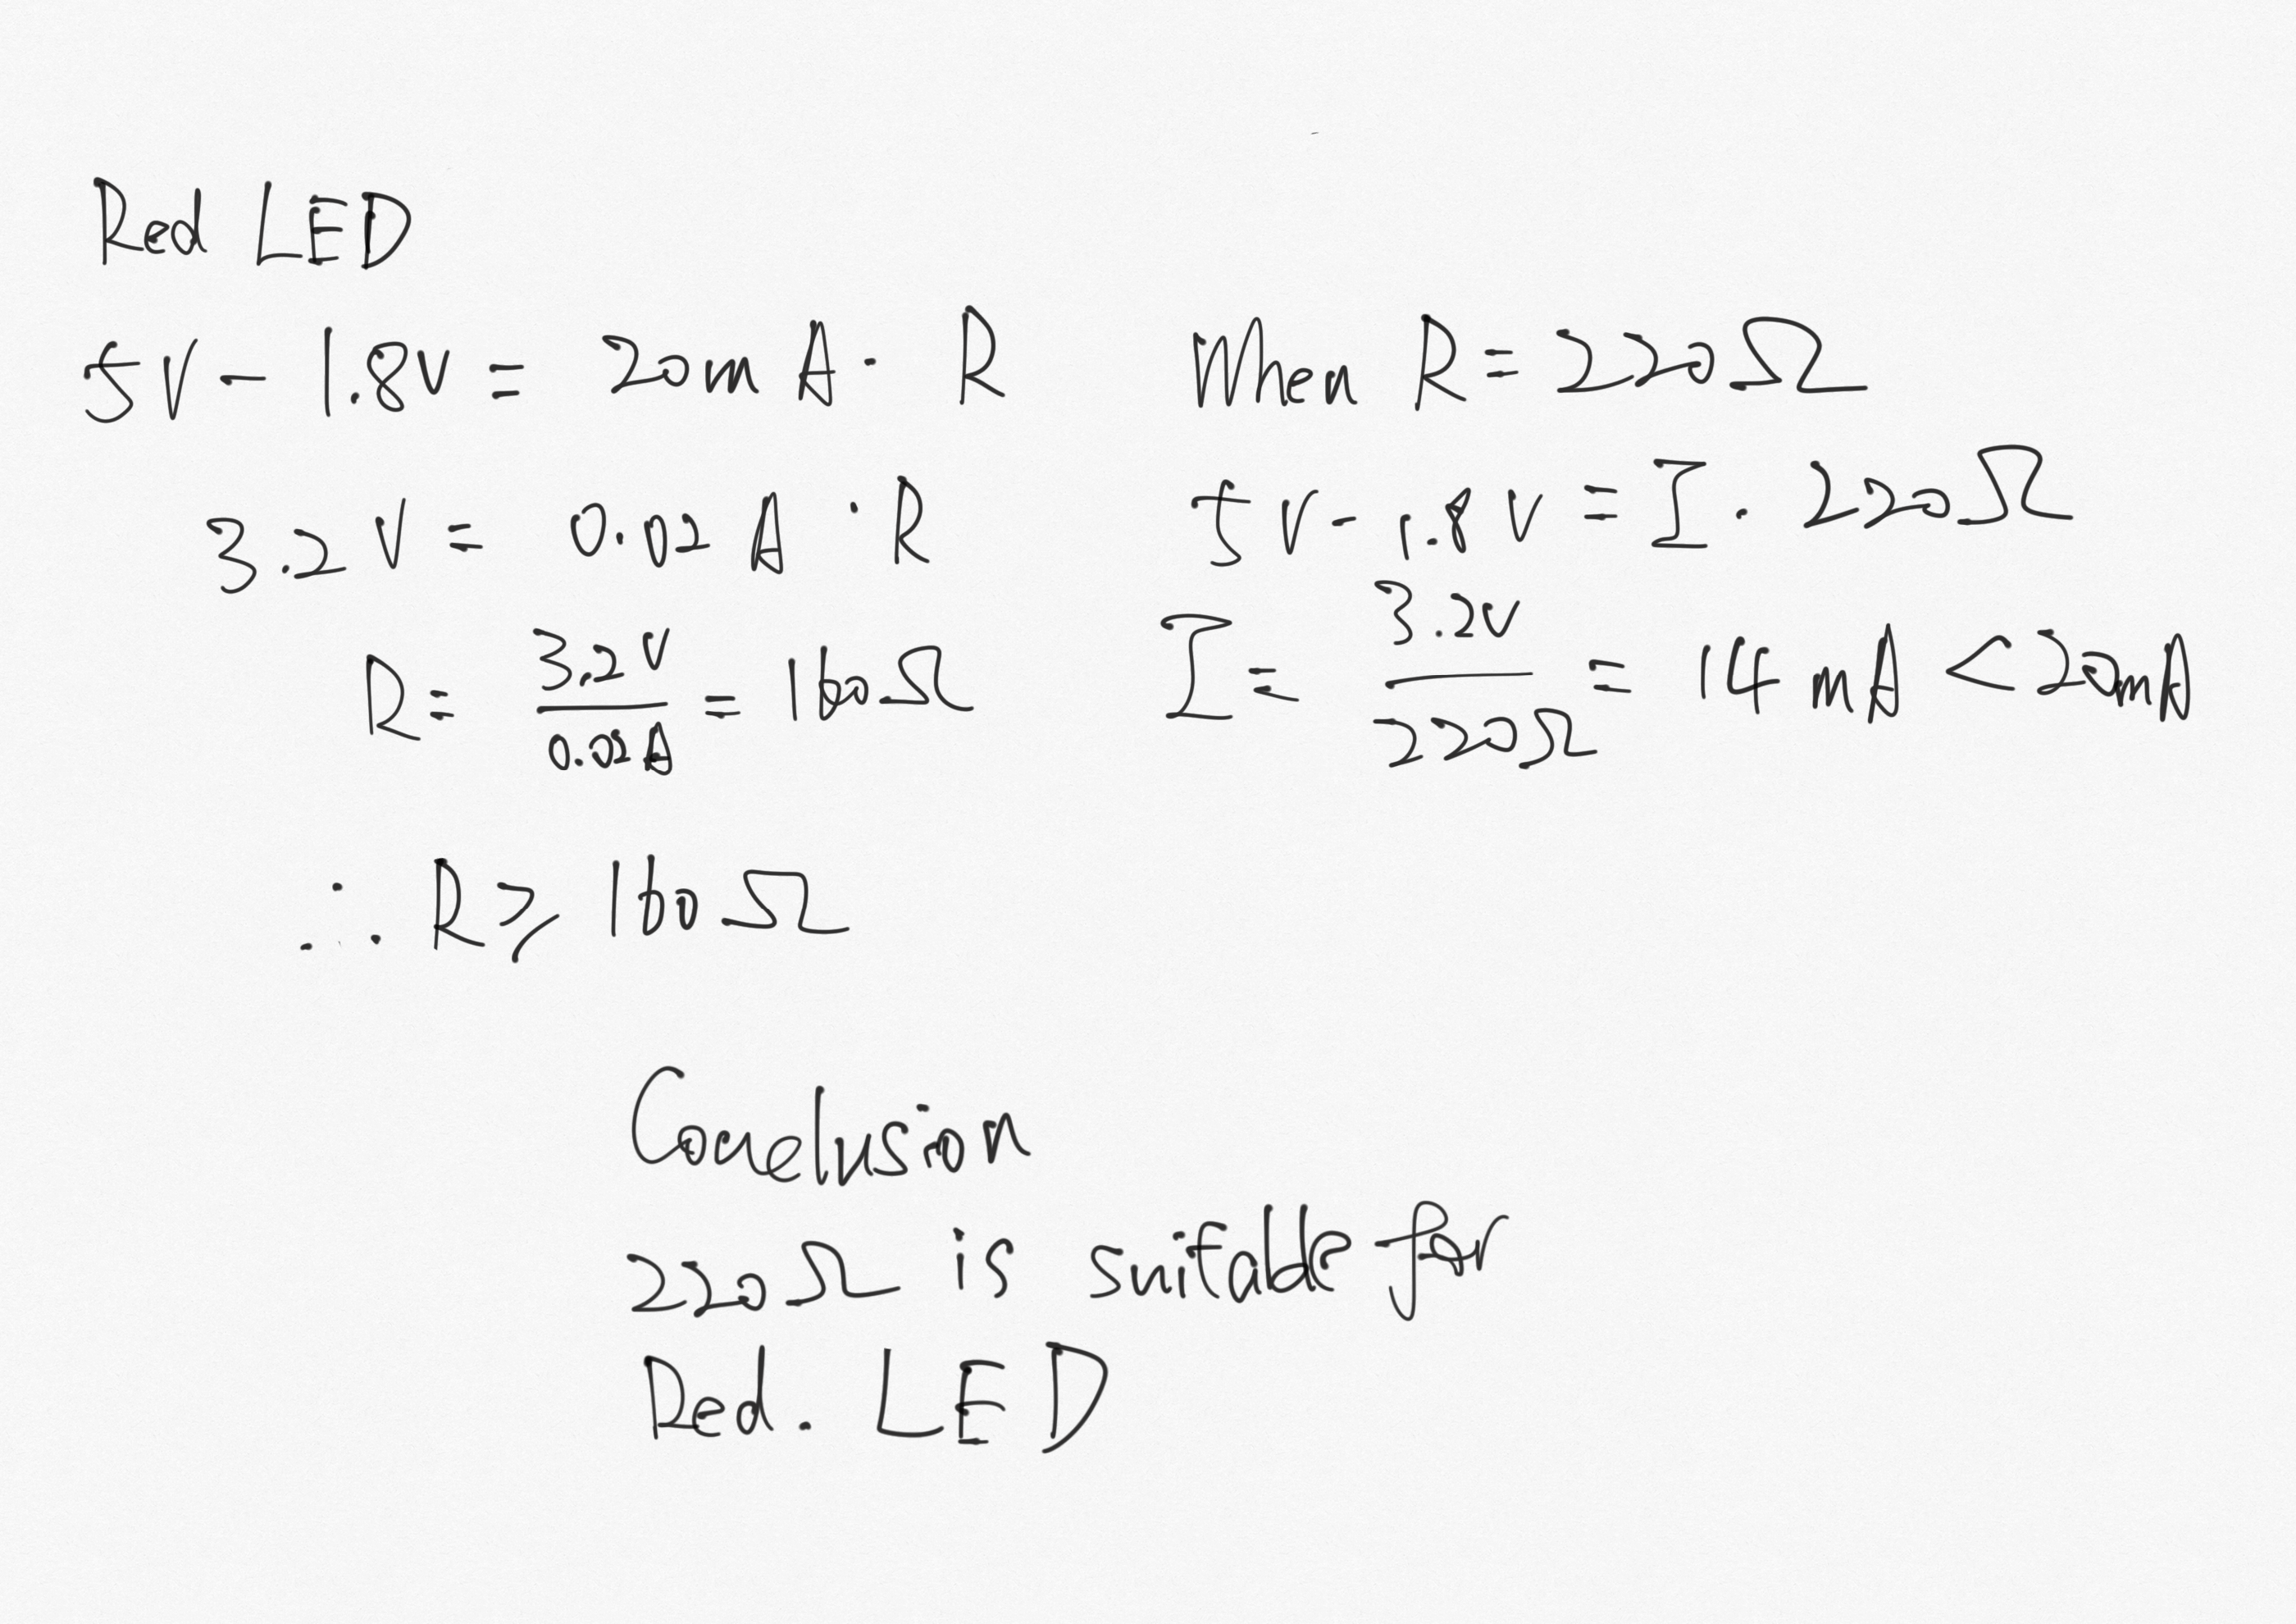 Red LED
5V - 1.8V = 20mA · R
3.2V = 0.02A · R
R = 3.2V / 0.02A = 160Ω
∴ R ≥ 160Ω
When R = 220Ω
5V - 1.8V = I · 220Ω
I = 3.2V / 220Ω = 14mA < 20mA
Conclusion
220Ω is suitable for
Red. LED